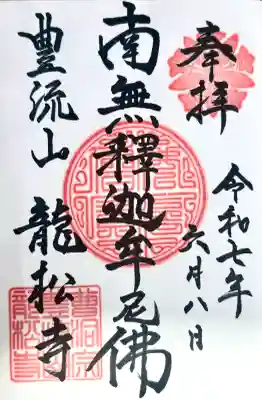 奉拝
令和七年
六月八日
南無釋迦牟尼佛
豊流山 龍松寺